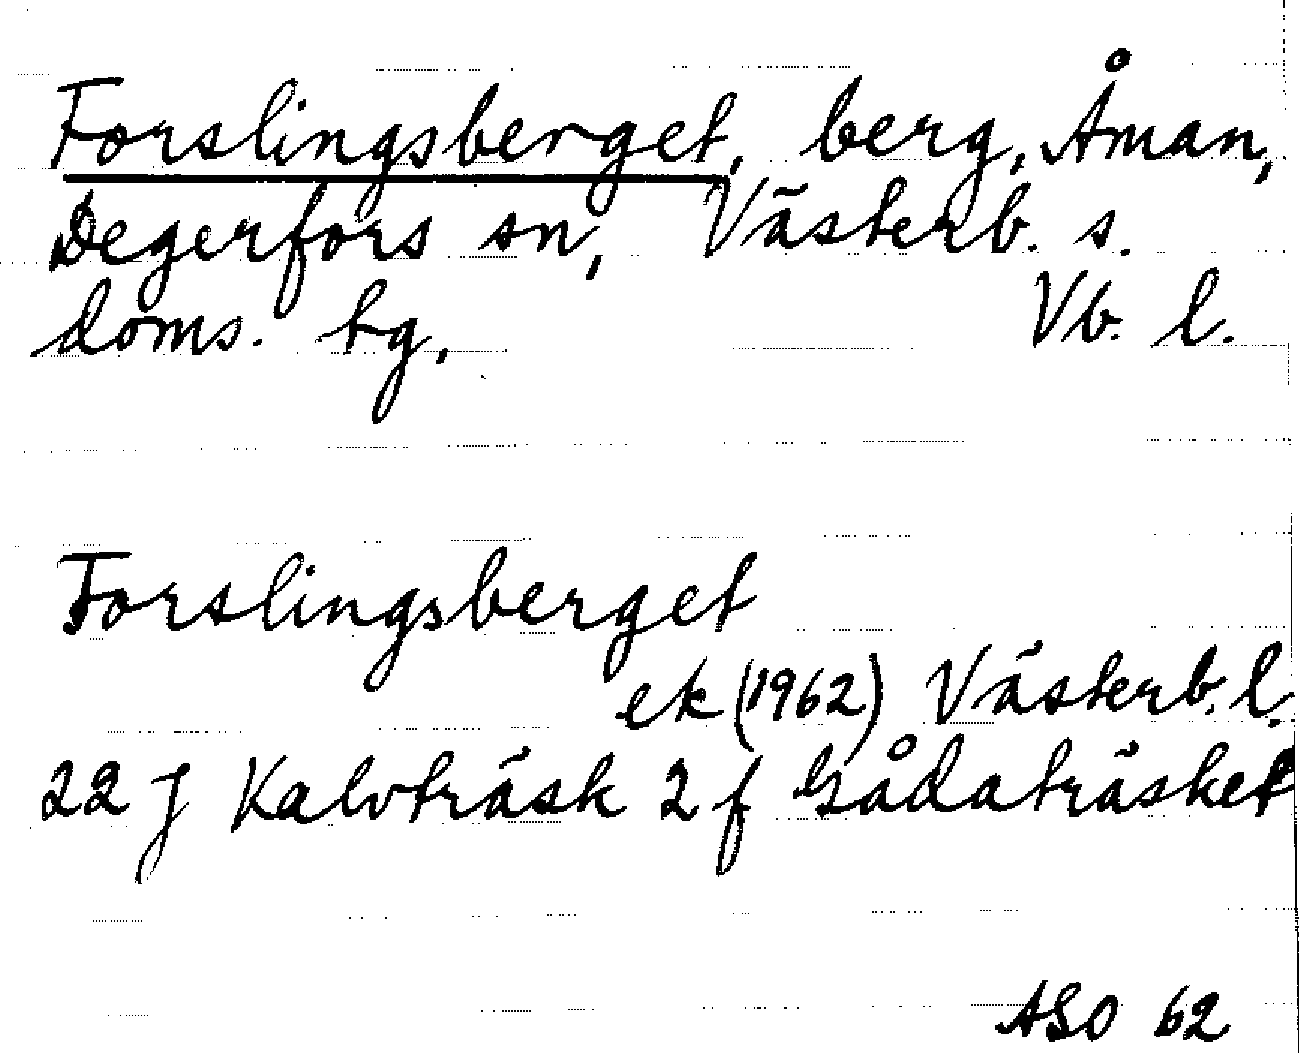 Forslingsberget, berg, Åman,
Degerfors sn, Västerb. s.
doms. tg, Vb. l.
Forslingsberget
ek (1962) Västerb. l.
22 J Kalvträsk 2 f Gådaträsket
ASO 62